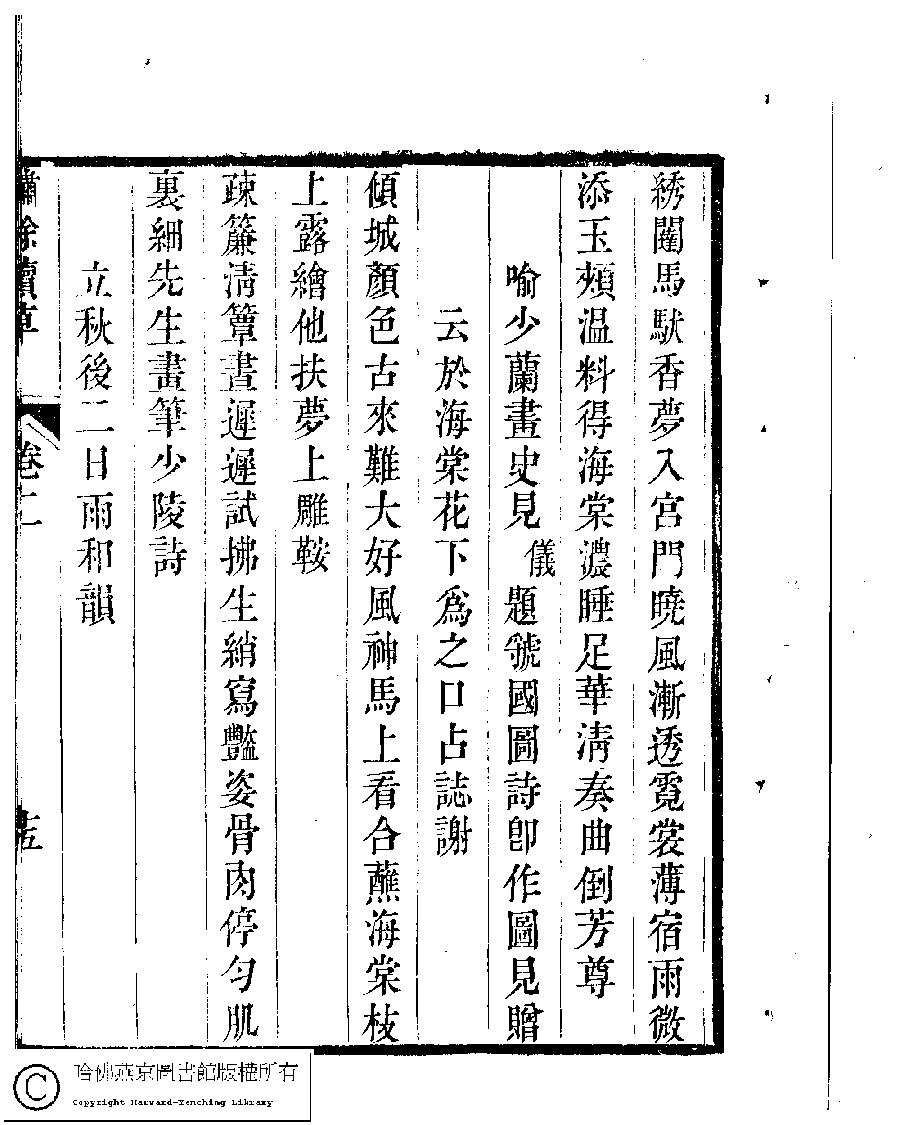 綉闥馬馱香夢入宮門曉風漸透霓裳薄宿雨微
添玉頰温料得海棠濃睡足華淸奏曲倒芳尊
喻少蘭畫史見儀題虢國圖詩卽作圖見贈
云於海棠花下爲之口占誌謝
傾城顏色古來難大好風神馬上看合蘸海棠枝
上露繪他扶夢上雕鞍
疎簾淸簟晝遲遲試拂生綃寫豔姿骨肉停勻肌
裏細先生畫筆少陵詩
立秋後二日雨和韻
繡餘續草 卷二 十五
哈佛燕京圖書館版權所有
Copyright Harvard-Yenching Library